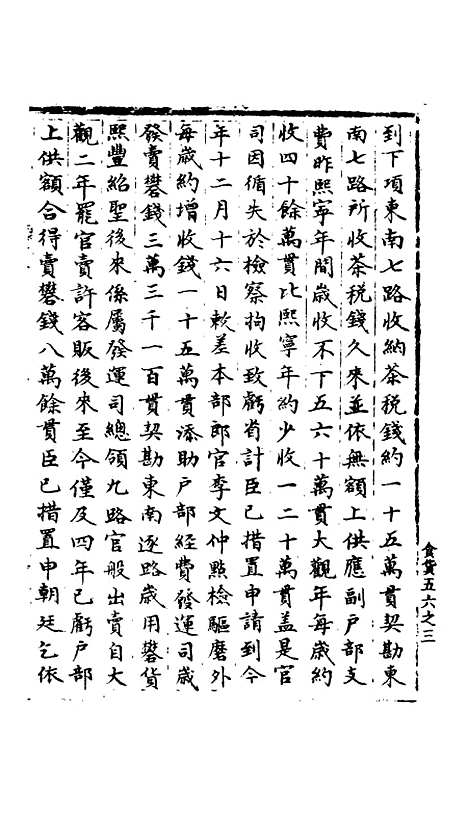 到下項東南七路收納茶稅錢約一十五萬貫契勘東
南七路所收茶稅錢久來並依無額上供應副戶部支
費昨熙寧年間歲收不下五六十萬貫大觀年每歲約
收四十餘萬貫比熙寧年約少收一二十萬貫蓋是官
司因循失於檢察拘收致虧省計臣已措置申請到今
年十二月十六日敕差本部郎官李文仲點檢驅磨外
每歲約增收錢一十五萬貫添助戶部經費發運司歲
發賣礬錢三萬三千一百貫契勘東南逐路歲用礬貨
熙豐紹聖後來係屬發運司總領九路官般出賣自大
觀二年罷官賣許客販後來至今僅及四年已虧戶部
上供額合得賣礬錢八萬餘貫臣已措置申朝廷乞依
食貨五六之三